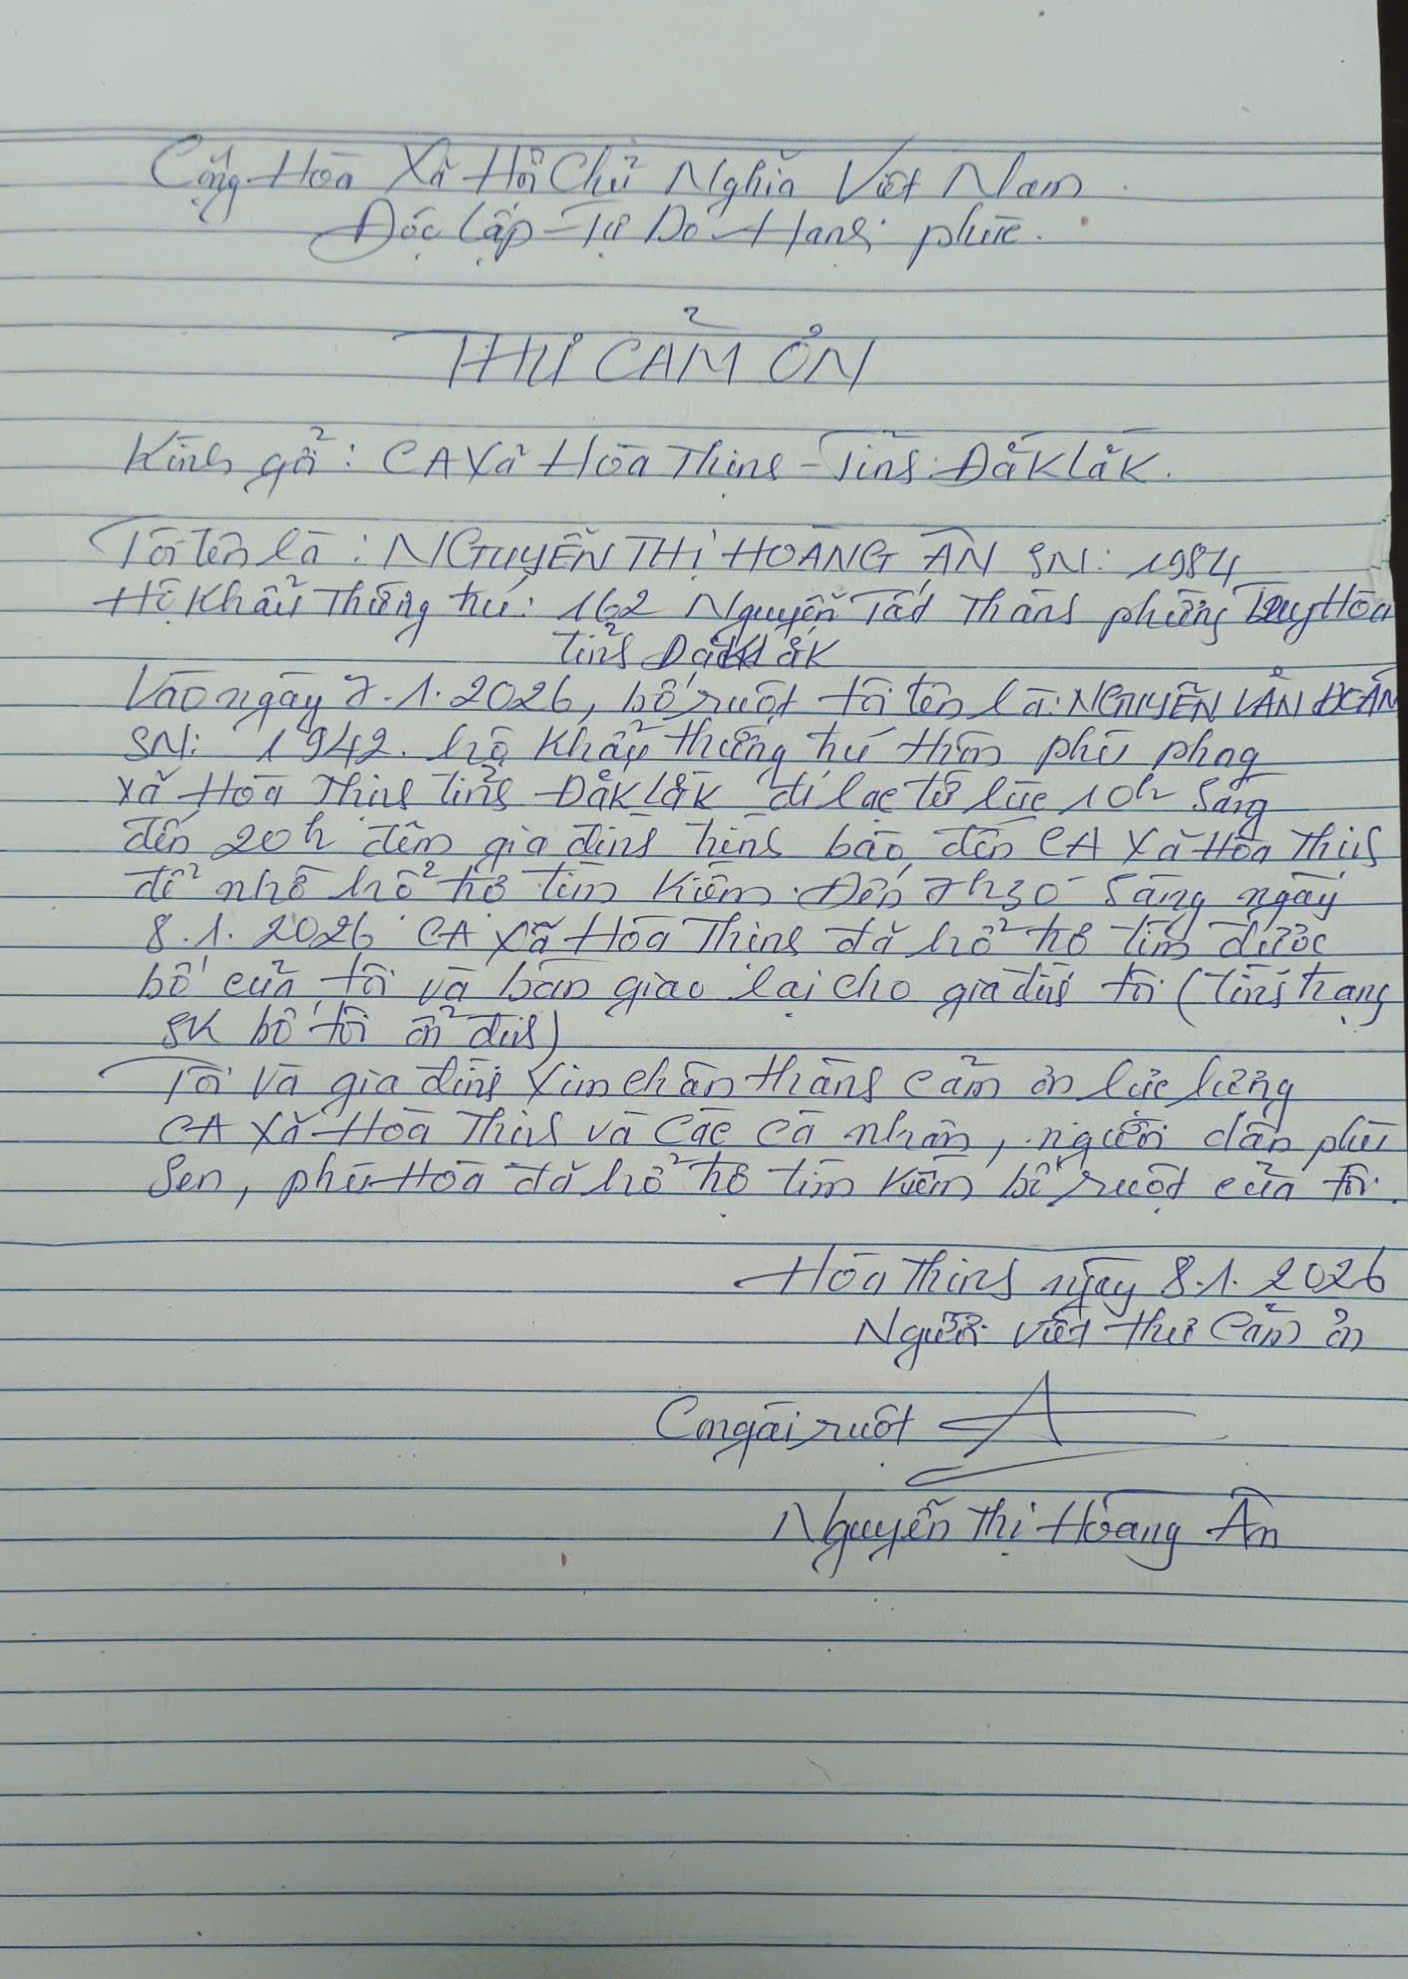 Cộng Hòa Xã Hội Chủ Nghĩa Việt Nam.
Độc lập - Tự Do - Hạnh phúc.
THƯ CẢM ƠN
Kính gởi: CA Xã Hòa Thịnh - Tỉnh Đắk Lắk.
Tôi tên là: NGUYỄN THỊ HOÀNG ÂN SN: 1984
Hộ Khẩu Thường trú: 162 Nguyễn Tất Thành phường Tuy Hòa
tỉnh Đắk Lắk
Vào ngày 7.1.2026, bố ruột tôi tên là: NGUYỄN VĂN ĐOÀN
SN: 1942. hộ khẩu thường trú thôn phú phong
xã Hòa Thịnh tỉnh Đắk Lắk đi lạc từ lúc 10h sáng
đến 20h đêm gia đình trình báo đến CA Xã Hòa Thịnh
để nhờ hổ trợ tìm kiếm. Đến 7h30 sáng ngày
8.1.2026 CA Xã Hòa Thịnh đã hổ trợ tìm được
bố của tôi và bàn giao lại cho gia đình tôi (tình trạng
SK bố tôi ổn định)
Tôi và gia đình xin chân thành cảm ơn lực lượng
CA Xã Hòa Thịnh và các cá nhân, người dân phú
Sen, phú Hòa đã hổ trợ tìm kiếm bố ruột của tôi.
Hòa Thịnh ngày 8.1.2026
Người viết thư cảm ơn
Con gái ruột
Nguyễn Thị Hoàng Ân